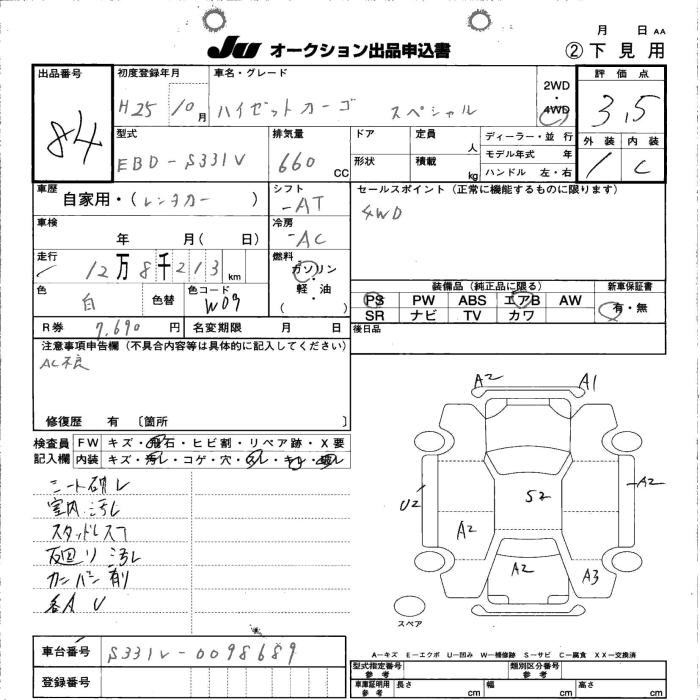 月 日 AA
JU オークション出品申込書 ②下見用
出品番号 84
初度登録年月 H25 10月
車名・グレード ハイゼットカーゴ スペシャル
2WD ・ 4WD
評価点 3.5
外装 内装 C
型式 EBD-S331V
排気量 660 CC
ドア 定員 人
形状 積載 kg
ディーラー・並 行
モデル年式 年
ハンドル 左・右
車歴 自家用・(レンタカー)
シフト -AT
セールスポイント(正常に機能するものに限ります)
4WD
車検 年 月( 日)
冷房 -AC
走行 12万8千213 km
燃料 ガソリン ・ 軽油
色 白 色替 色コード W09
装備品(純正品に限る) 新車保証書
PS PW ABS エアB AW 有・無
SR ナビ TV カワ
R券 7,690 円 名変期限 月 日
後日品
注意事項申告欄(不具合内容等は具体的に記入してください)
AC不良
修復歴 有 〔箇所 〕
検査員記入欄 FW キズ・飛石・ヒビ割・リペア跡・X要
内装 キズ・汚レ・コゲ・穴・
室内汚レ
スタッドレス
汚レ
各A U
A2 A1
U2 A2 S2 A2
A2 A3
スペア
車台番号 S331V-0098689
登録番号
A-キズ E-エクボ U-凹み W-補修跡 S-サビ C-腐食 XX-交換済
型式指定番号 参考 類別区分番号 参考
車庫証明用 参考 長さ cm 幅 cm 高さ cm